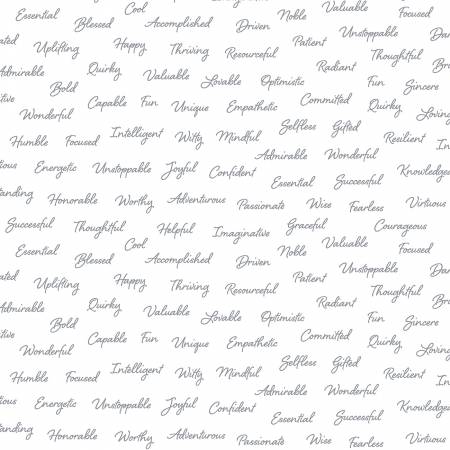 Essential Cool Accomplished Noble Valuable Focused
Blessed Driven Unstoppable
Uplifting Happy Thriving Resourceful Patient Thoughtful
Admirable Quirky Valuable Lovable Optimistic Radiant Fun Sincere
Bold Capable Fun Unique Empathetic Committed Quirky Loving
Wonderful Intelligent Witty Mindful Selfless Gifted Resilient
Humble Focused Admirable Wonderful
Energetic Unstoppable Joyful Confident Essential Successful Knowledgea
Honorable Worthy Adventurous Passionate Wise Fearless Virtuous
Successful Thoughtful Helpful Imaginative Graceful Courageous
Essential Cool Accomplished Noble Valuable Focused
Blessed Driven Unstoppable
Uplifting Happy Thriving Resourceful Patient Thoughtful
Admirable Quirky Valuable Lovable Optimistic Radiant Fun Sincere
Bold Capable Fun Unique Empathetic Committed Quirky Loving
Wonderful Intelligent Witty Mindful Selfless Gifted Resilient
Humble Focused Admirable Wonderful
Energetic Unstoppable Joyful Confident Essential Successful Knowledgea
Honorable Worthy Adventurous Passionate Wise Fearless Virtuous